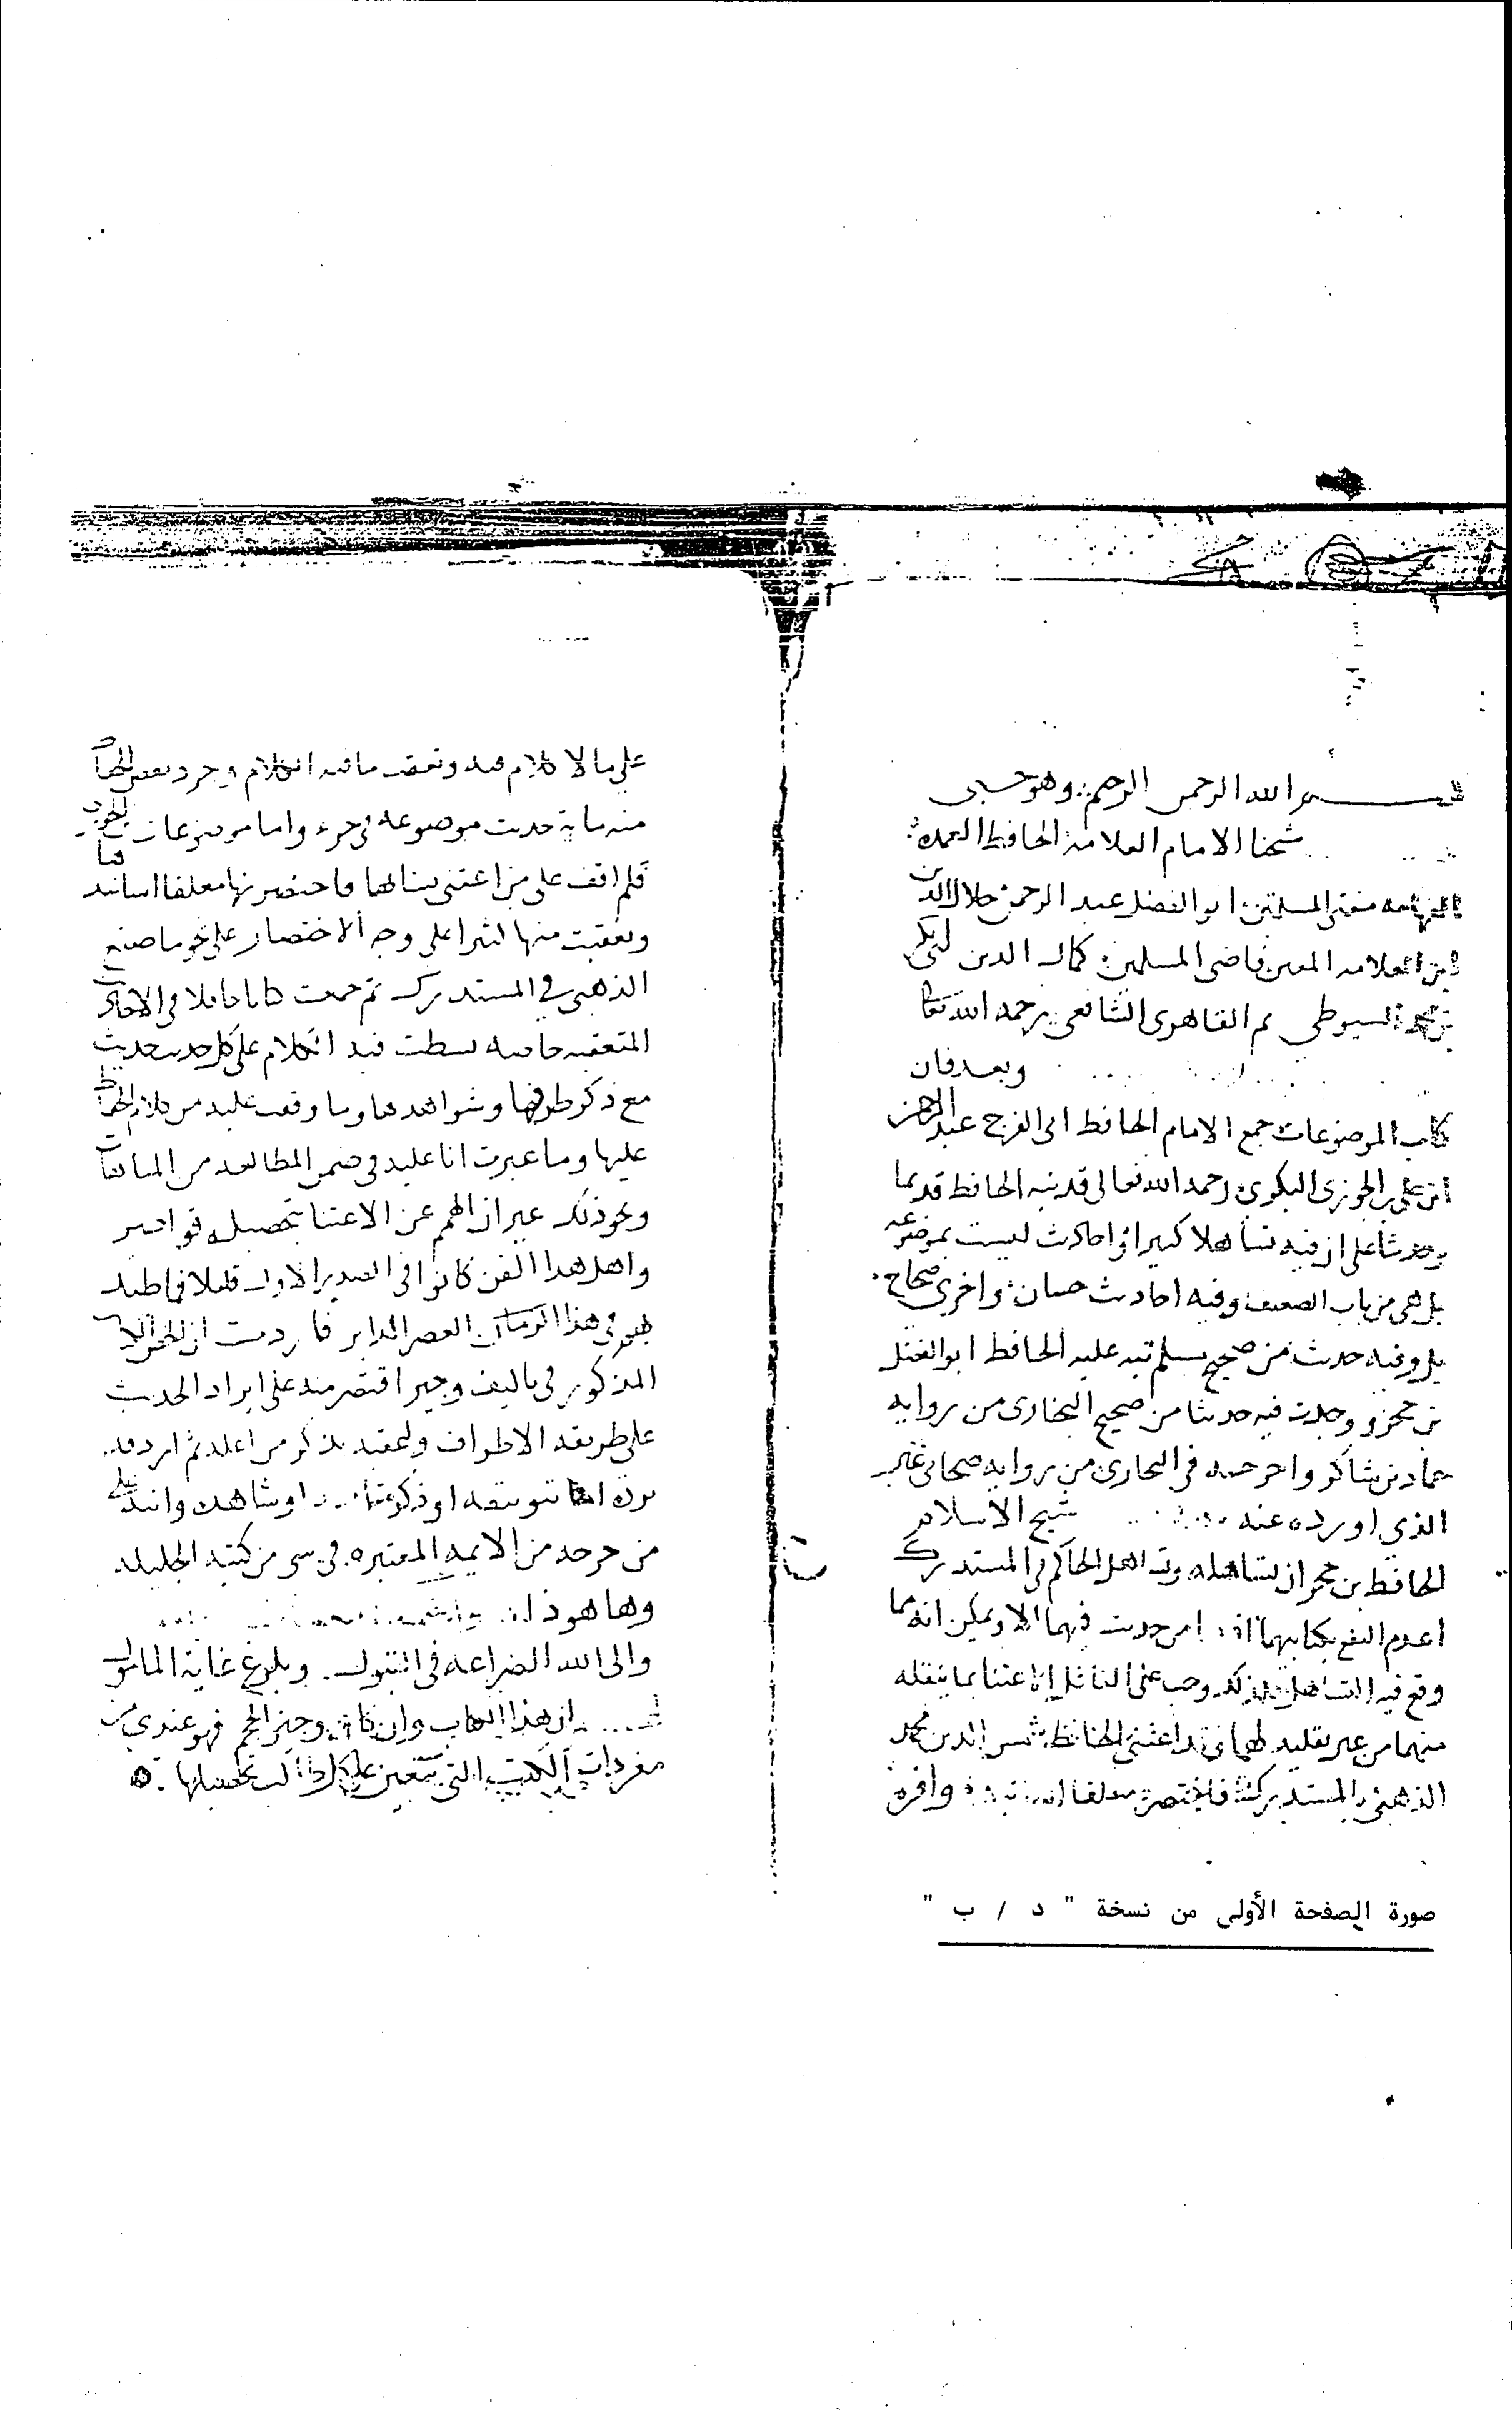 بسم الله الرحمن الرحيم وهو حسبى
شيخنا الامام العلامة الحافظ العمدة
الفهامه مفتى المسلمين ابو الفضل عبد الرحمن جلال الدين
ابن العلامه قاضى المسلمين كمال الدين ابى بكر
السيوطي ثم القاهرى الشافعى رحمه الله تعالى
وبعد فان
كتاب الموضوعات جمع الامام الحافظ ابى الفرج عبد الرحمن
ابن على بن الجوزى البكرى رحمه الله تعالى قد نبه الحافظ قديما
وحديثا على ان فيه تساهلا كبيرا واحاديث ليست بموضوعه
بل هى من باب الضعيف وفيه احاديث حسان واخرى صحاح
بل وفيه حديث من صحيح مسلم نبه عليه الحافظ ابو الفضل
بن حجر ووجدت فيه حديثا من صحيح البخارى من روايه
حماد بن شاكر واخر حديثه فى البخارى من روايه صحابى غير
الذي اورده عنه شيخ الاسلام
الحافظ بن حجر ان تساهله وتساهل الحاكم فى المستدرك
اعدم النفع بكتابيهما اذ ما من حديث فيهما الا ويمكن انه مما
وقع فيه التساهل فلذلك وجب على الناقل الاعتنا بما ينقله
منهما من غير تقليد لهما وقد اعتنى الحافظ شمس الدين محمد
الذهبى بالمستدرك فاختصره معلقا اسانيده واقره
على ما لا كلام فيه وتعقب ما فيه الكلام وجرد بعض الحفاظ
منه ماية حديث موضوعه فى جزء واما موضوعات ابن الجوزى
فلم اقف على من اعتنى بشانها فاختصرتها معلقا اسانيدها
وتعقبت منها كثيرا على وجه الاختصار على نحو ما صنع
الذهبى في المستدرك ثم جمعت كتابا حافلا فى الاحاديث
المتعقبه خاصه بسطت فيه الكلام على كل حديث حديث
مع ذكر طرقها وشواهدها وما وقفت عليه من كلام الحفاظ
عليها وما عبرت انا عليه فى ضمن المطالعه من المتابعات
ونحو ذلك غير ان الهمم عن الاعتنا بتحصيله قواصر
واهل هذا الفن كانوا فى الصدر الاول قليلا فما ظنك
بهم فى هذا الزمان العصر الداثر فاردت ان الخص الكتاب
المذكور فى تاليف وجيز اقتصر منه على ايراد الحديث
على طريقه الاطراف واعقبه بذكر من اعله ثم اردفه
برده اما بتوثيقه او ذكر متابع او شاهد وانبه على
من خرجه من الايمه المعتبره فى شى من كتبه الجليله
وها هو ذا
والى الله الضراعه فى القبول وبلوغ غاية المامول
ان هذا الكتاب وان كان وجيز الحجم فهو عندى من
مفردات الكتب التى يتعين على كل طالب تحصيلها
صورة الصفحة الأولى من نسخة " د / ب "